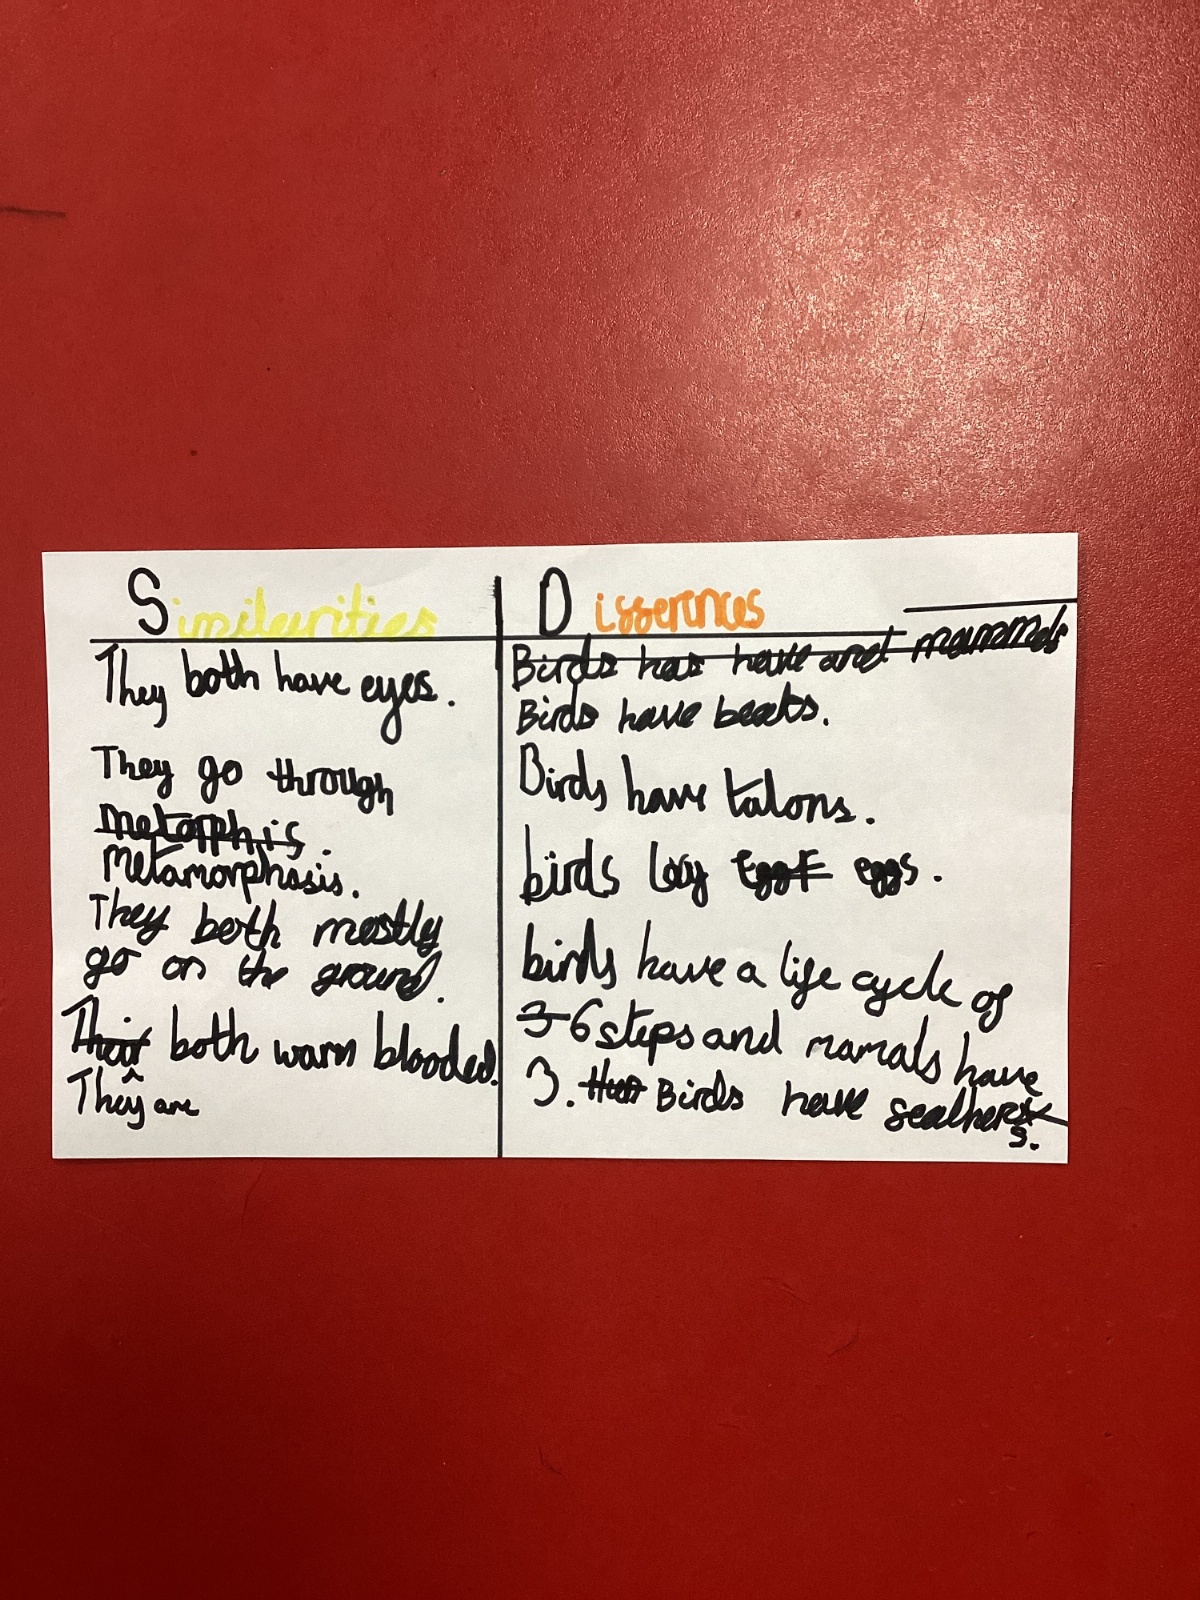 Similarities
They both have eyes.
They go through
metorphis.
Metamorphosis.
They both mostly
go on the ground.
Their both warm blooded.
They are
Differences
Birds has have and mammals
Birds have beaks.
Birds have talons.
birds lay eggs.
birds have a life cycle of
3-6 steps and mamals have
3. Birds have feathers
s.